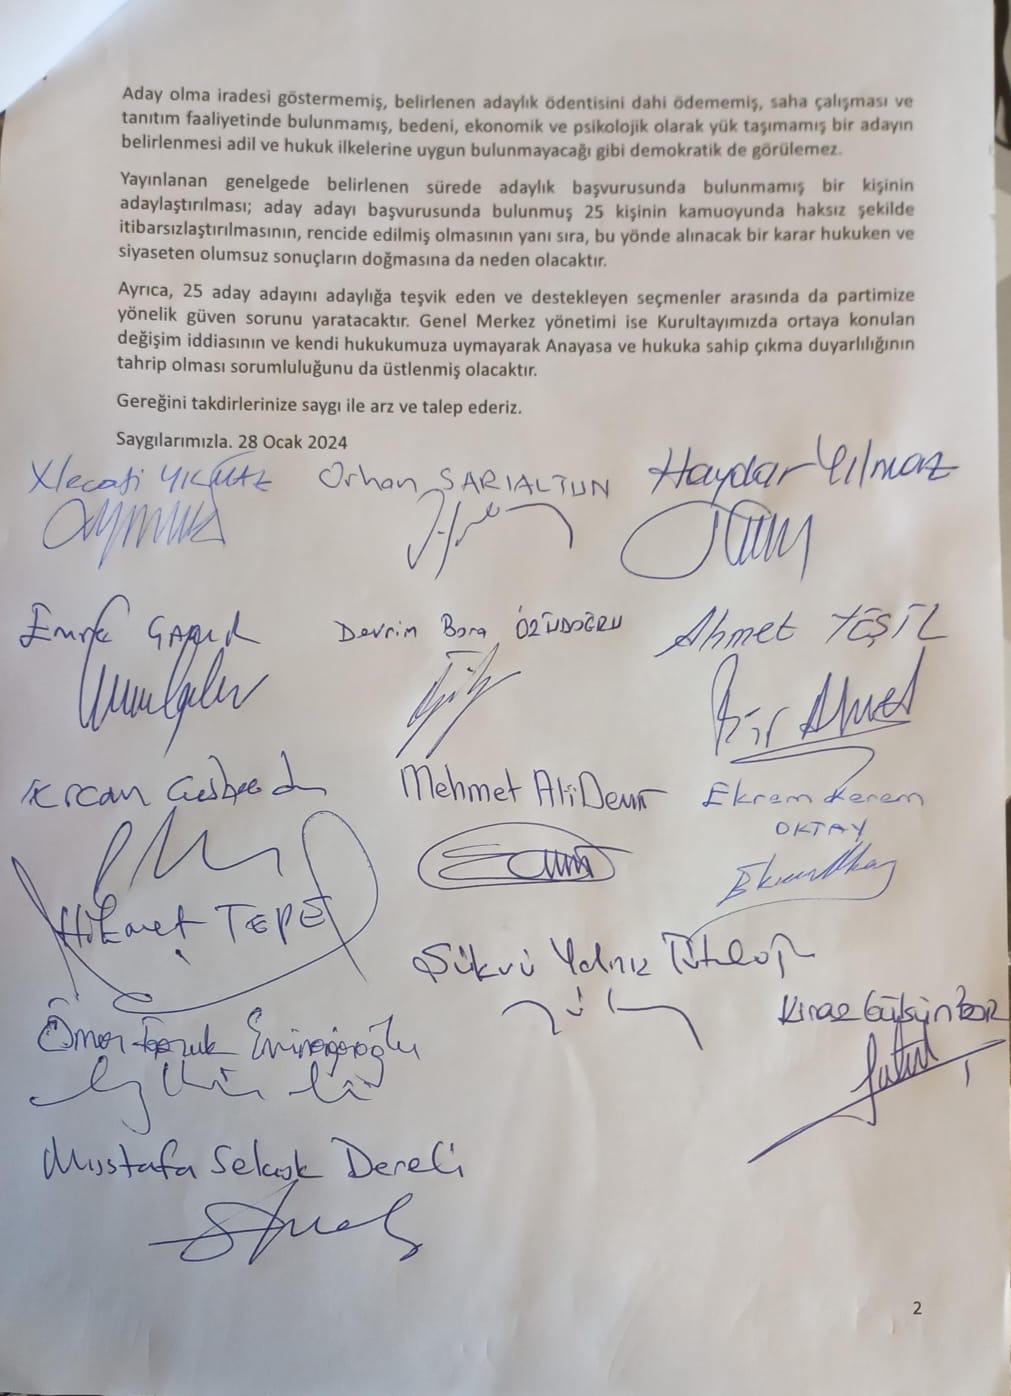 Aday olma iradesi göstermemiş, belirlenen adaylık ödentisini dahi ödememiş, saha çalışması ve
tanıtım faaliyetinde bulunmamış, bedeni, ekonomik ve psikolojik olarak yük taşımamış bir adayın
belirlenmesi adil ve hukuk ilkelerine uygun bulunmayacağı gibi demokratik de görülemez.
Yayınlanan genelgede belirlenen sürede adaylık başvurusunda bulunmamış bir kişinin
adaylaştırılması; aday adayı başvurusunda bulunmuş 25 kişinin kamuoyunda haksız şekilde
itibarsızlaştırılmasının, rencide edilmiş olmasının yanı sıra, bu yönde alınacak bir karar hukuken ve
siyaseten olumsuz sonuçların doğmasına da neden olacaktır.
Ayrıca, 25 aday adayını adaylığa teşvik eden ve destekleyen seçmenler arasında da partimize
yönelik güven sorunu yaratacaktır. Genel Merkez yönetimi ise Kurultayımızda ortaya konulan
değişim iddiasının ve kendi hukukumuza uymayarak Anayasa ve hukuka sahip çıkma duyarlılığının
tahrip olması sorumluluğunu da üstlenmiş olacaktır.
Gereğini takdirlerinize saygı ile arz ve talep ederiz.
Saygılarımızla. 28 Ocak 2024
Necati YIKMAZ Orhan SARIALTUN Haydar Yılmaz
Emre Devrim Bora ÖZÜDOĞRU Ahmet YEŞİL
Ercan Mehmet Ali Demir Ekrem Kerem
OKTAY
Hikmet TEPE
Şükrü Yalnız
Ömer Faruk Eminağaoğlu
Mustafa Selçuk Dereli
2